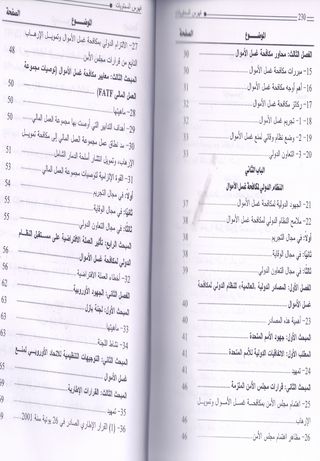 230 فهرس المحتويات
الموضوع الصفحة
الفصل الثالث: محاور مكافحة غسل الأموال 30
15- مبررات مكافحة غسل الأموال 30
16- أهم أوجه مكافحة غسل الأموال 31
17- ركائز مكافحة غسل الأموال 32
18- 1- تجريم غسل الأموال 32
19- 2- وضع نظام وقائي لمنع غسل الأموال 33
20- 3- التعاون الدولي 33
الباب الثاني
النظام الدولي لمكافحة غسل الأموال
21- الجهود الدولية لمكافحة غسل الأموال 37
22- ملامح النظام الدولي لمكافحة غسل الأموال 38
أولاً: في مجال التجريم 38
ثانياً: في مجال الوقاية 38
ثالثاً: في مجال التعاون الدولي 39
الفصل الأول: المصادر الدولية «العالمية» للنظام الدولي لمكافحة
غسل الأموال 40
23- أهمية هذه المصادر 40
المبحث الأول: جهود الأمم المتحدة 41
المطلب الأول: الاتفاقيات الدولية للأمم المتحدة 41
24- تمهيد 41
المبحث الثاني: قرارات مجلس الأمن الملزمة 46
25- اهتمام مجلس الأمن بمكافحة غسل الأموال وتمويل
الإرهاب 46
26- مظاهر اهتمام مجلس الأمن 46
فهرس المحتويات
الموضوع الصفحة
27- الالتزام الدولي بمكافحة غسل الأموال وتمويل الإرهاب
النابع من قرارات مجلس الأمن 48
المبحث الثالث: معايير مكافحة غسل الأموال (توصيات مجموعة
العمل المالي FATF) 50
28- ماهيتها 50
29- أهداف التدابير التي أوصت بها مجموعة العمل المالي
30- مد نطاق عمل مجموعة العمل المالي إلى مكافحة تمويل
الإرهاب، وتمويل انتشار أسلحة الدمار الشامل
31- القوة الإلزامية لتوصيات مجموعة العمل المالي
أولاً: في مجال التجريم
ثانياً: في مجال الوقاية
ثالثاً: في مجال التعاون الدولي
المبحث الرابع: تأثير العملة الافتراضية على مستقبل النظام
الدولي لمكافحة غسل الأموال
32- أخطاء العملة الافتراضية
الفصل الثاني: الجهود الأوروبية
المبحث الأول: لجنة بازل
33- ماهيتها
34- نشاط اللجنة
المبحث الثاني: التوجيهات التنظيمية للاتحاد الأوروبي لمنع
غسل الأموال
المبحث الثالث: القرارات الإطارية
35- تمهيد
36- (1) القرار الإطاري الصادر في 26 يونية سنة 2001